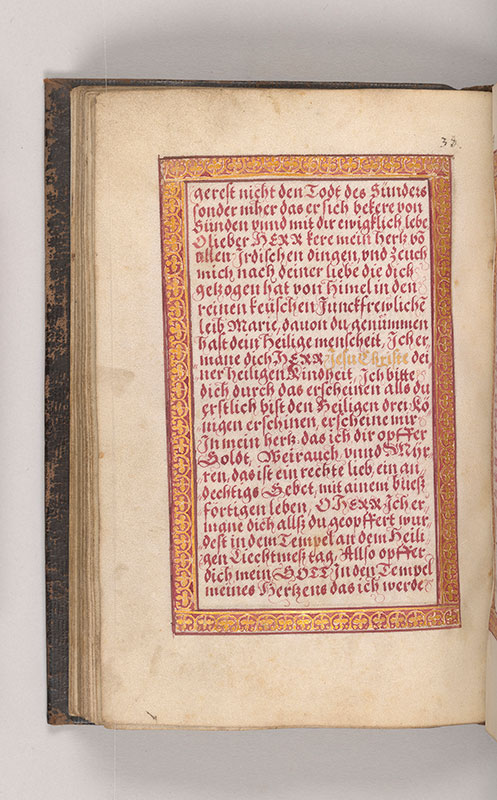 38.
gerest nicht den Todt des Sünders
sonder mher das er sich bekere von
Sünden vnnd mit dir ewigklich lebe
O lieber HERR kere mein hertz vō
allen Irdischen dingen, vnd zeuch
mich nach deiner liebe die dich
getzogen hat von Himel in den
reinen keüschen Junckfrewlichē
leib Marie, dauon du genümmen
hast dein Heilige menscheit, Ich er
mane dich HERR Jesu Christe dei
ner heiligen Kindheit, Ich bitte
dich durch das erscheinen alls du
erstlich bist den Heiligen drei Kö
nigen erschinen, erscheine mir
In mein hertz, das ich dir opffer
Goldt, Weirauch vnnd Myr
ren, das ist ein rechte lieb, ein an
dechtigs Gebet, mit ainem bueß
förtigen leben, O HERR Ich er
mane dich allß du geopffert wur
dest in dem Tempel an dem Heili
gen Liechtmeß tag, Allso opffer
dich mein GOTT In den Tempel
meines Hertzens das ich werde